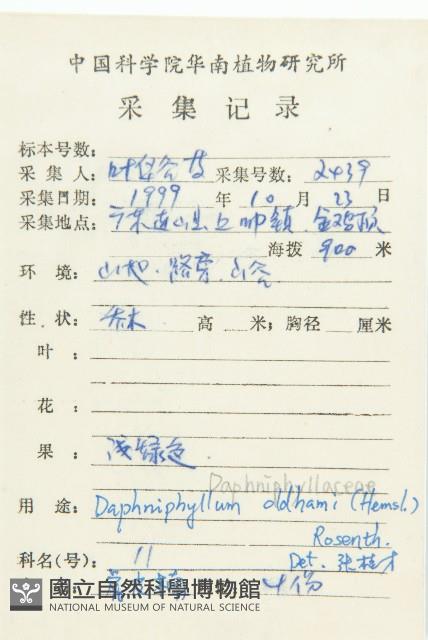 中国科学院华南植物研究所
采集记录
标本号数：
采集人：叶 采集号数：2439
采集日期：1999 年 10 月 23 日
采集地点：广东连山县 镇. 金鸡
海拨 900 米
环境：山地. 路旁. 山谷
性状：乔木 高 米；胸径 厘米
叶：
花：
果：浅绿色
Daphniphyllaceae
用途：Daphniphyllum oldhami (Hemsl.)
Rosenth.
科名(号)：11 Det. 张桂才
4份
國立自然科學博物館
NATIONAL MUSEUM OF NATURAL SCIENCE